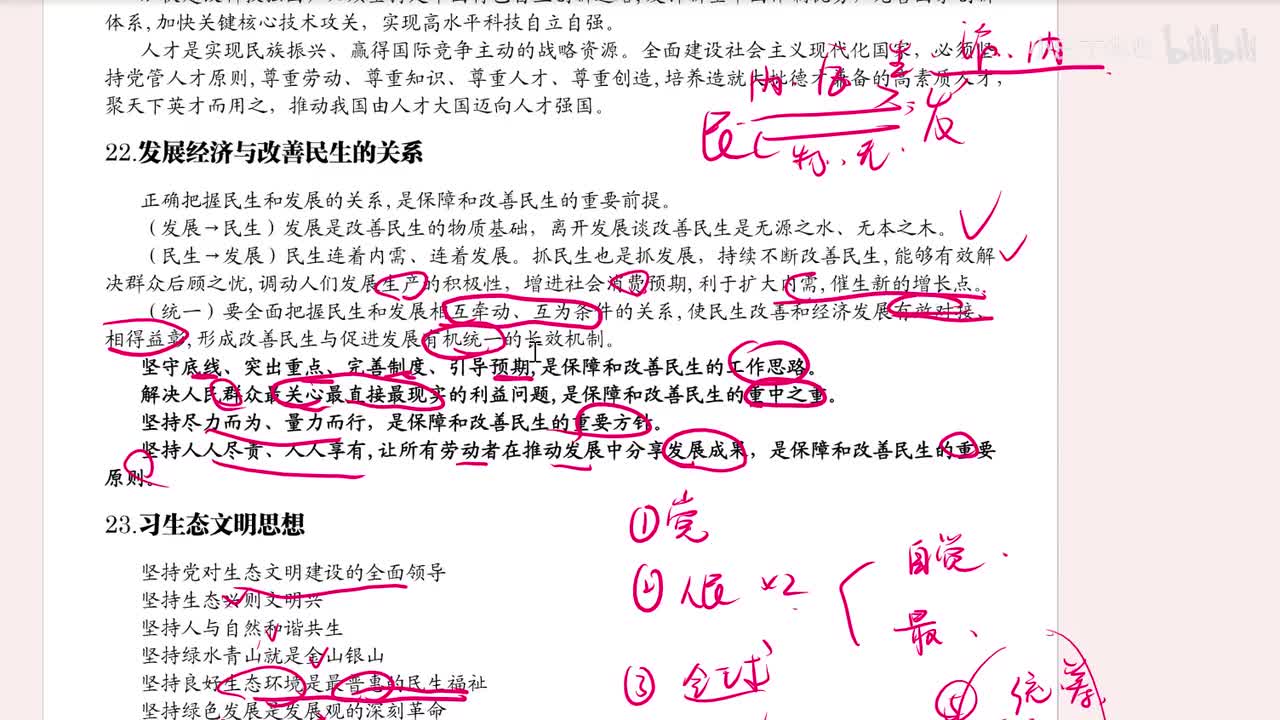 体系,加快关键核心技术攻关，实现高水平科技自立自强。
人才是实现民族振兴、赢得国际竞争主动的战略资源。全面建设社会主义现代化国家，必须坚
持党管人才原则,尊重劳动、尊重知识、尊重人才、尊重创造,培养造就大批德才兼备的高素质人才，
聚天下英才而用之，推动我国由人才大国迈向人才强国。
bilibili
源、内
内、后、生
民 发
物、无、
22.发展经济与改善民生的关系
正确把握民生和发展的关系,是保障和改善民生的重要前提。
（发展→民生）发展是改善民生的物质基础，离开发展谈改善民生是无源之水、无本之木。
（民生→发展）民生连着内需、连着发展。抓民生也是抓发展，持续不断改善民生,能够有效解
决群众后顾之忧,调动人们发展生产的积极性，增进社会消费预期,利于扩大内需,催生新的增长点。
（统一）要全面把握民生和发展相互牵动、互为条件的关系,使民生改善和经济发展有效对接、
相得益彰,形成改善民生与促进发展有机统一的长效机制。
坚守底线、突出重点、完善制度、引导预期,是保障和改善民生的工作思路。
解决人民群众最关心最直接最现实的利益问题,是保障和改善民生的重中之重。
坚持尽力而为、量力而行，是保障和改善民生的重要方针。
坚持人人尽责、人人享有,让所有劳动者在推动发展中分享发展成果，是保障和改善民生的重要
原则。
23.习生态文明思想
坚持党对生态文明建设的全面领导
坚持生态兴则文明兴
坚持人与自然和谐共生
坚持绿水青山就是金山银山
坚持良好生态环境是最普惠的民生福祉
坚持绿色发展是发展观的深刻革命
①党
②人民 x2
自觉
最、
③全球
⑤统筹